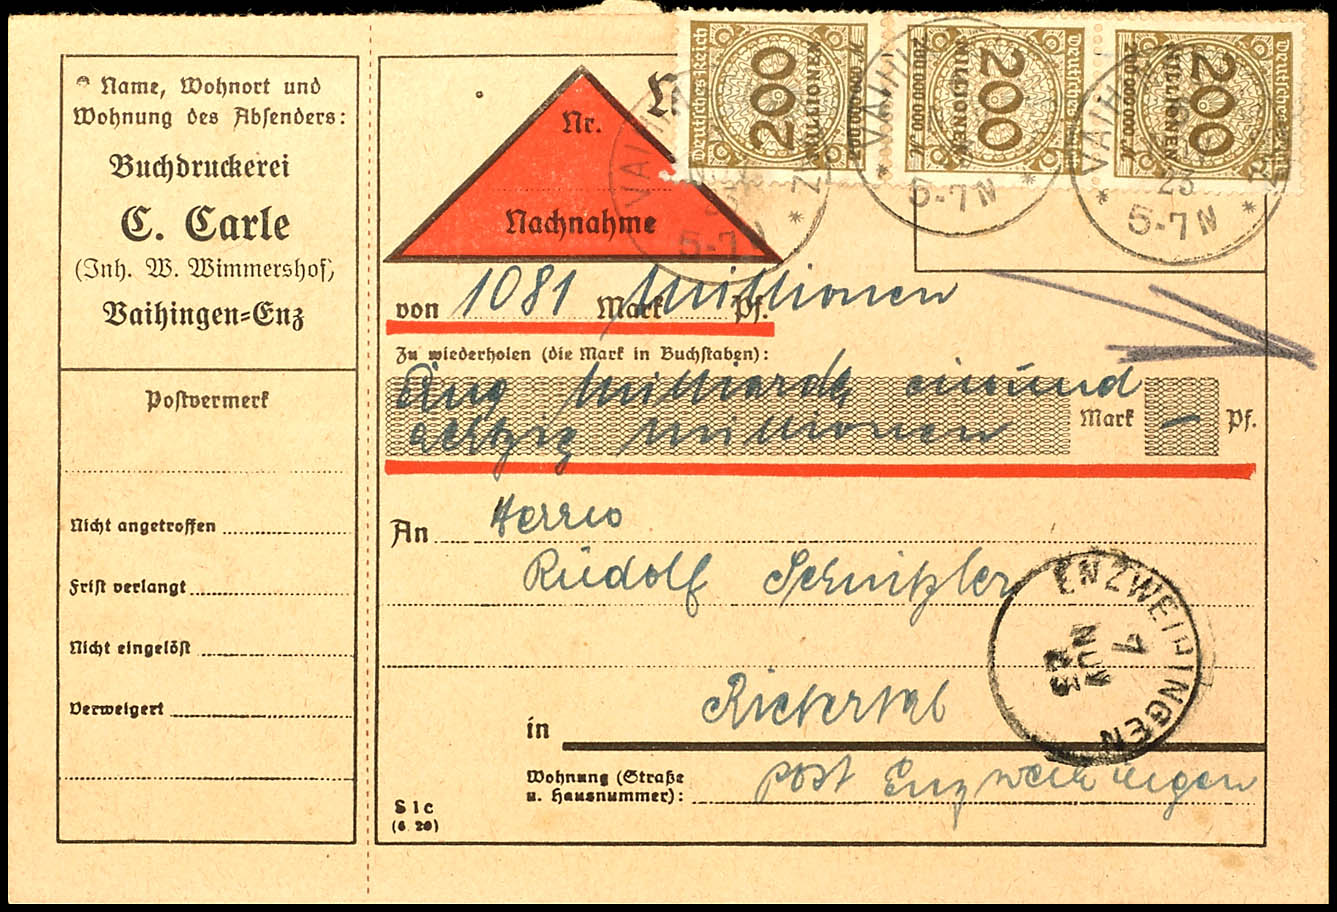 Name, Wohnort und
Wohnung des Absenders:
Buchdruckerei
C. Carle
(Inh. W. Wimmershof)
Vaihingen=Enz
Postvermerk
Nicht angetroffen
Frist verlangt
Nicht eingelöst
Verweigert
Deutsches Reich
200
MILLIONEN
200 000 000 M
Deutsches Reich
200
MILLIONEN
200 000 000 M
Deutsches Reich
200
MILLIONEN
200 000 000 M
VAIHIN
5-7 N
VAIHIN
5-7 N
VAIHIN
23
5-7 N
Nr.
Nachnahme
von 1081 Mark Millionen Pf.
Zu wiederholen (die Mark in Buchstaben):
Milliarde einund
achtzig Millionen Mark — Pf.
An Herrn
Rudolf Schnitzler
in
Wohnung (Straße
u. Hausnummer): Post Enzweihingen
S 1 c
(6 20)
ENZWEIHINGEN
7
NOV
23